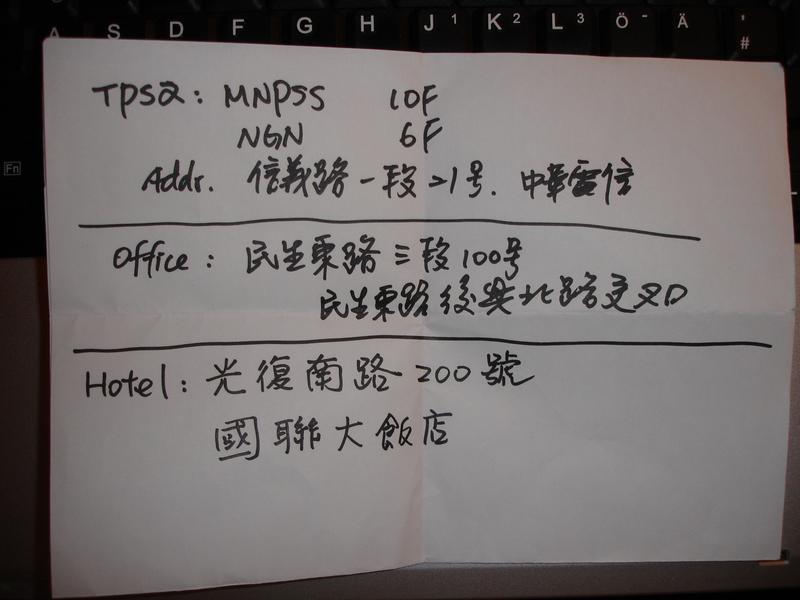 A S D F G H J 1 K 2 L 3 Ö Ä ' #
Fn
TPS2: MNPSS 10F
NGN 6F
Addr. 信義路一段21号. 中華電信
Office: 民生東路三段100号
民生東路復興北路交叉口
Hotel: 光復南路200號
國聯大飯店